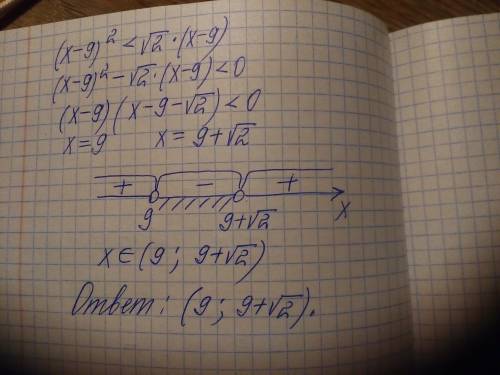 (x-9)² < √2 · (x-9)
(x-9)² - √2 · (x-9) < 0
(x-9)(x-9-√2) < 0
x = 9 x = 9+√2
+ - +
9 9+√2 x
x ∈ (9; 9+√2)
Ответ: (9; 9+√2).